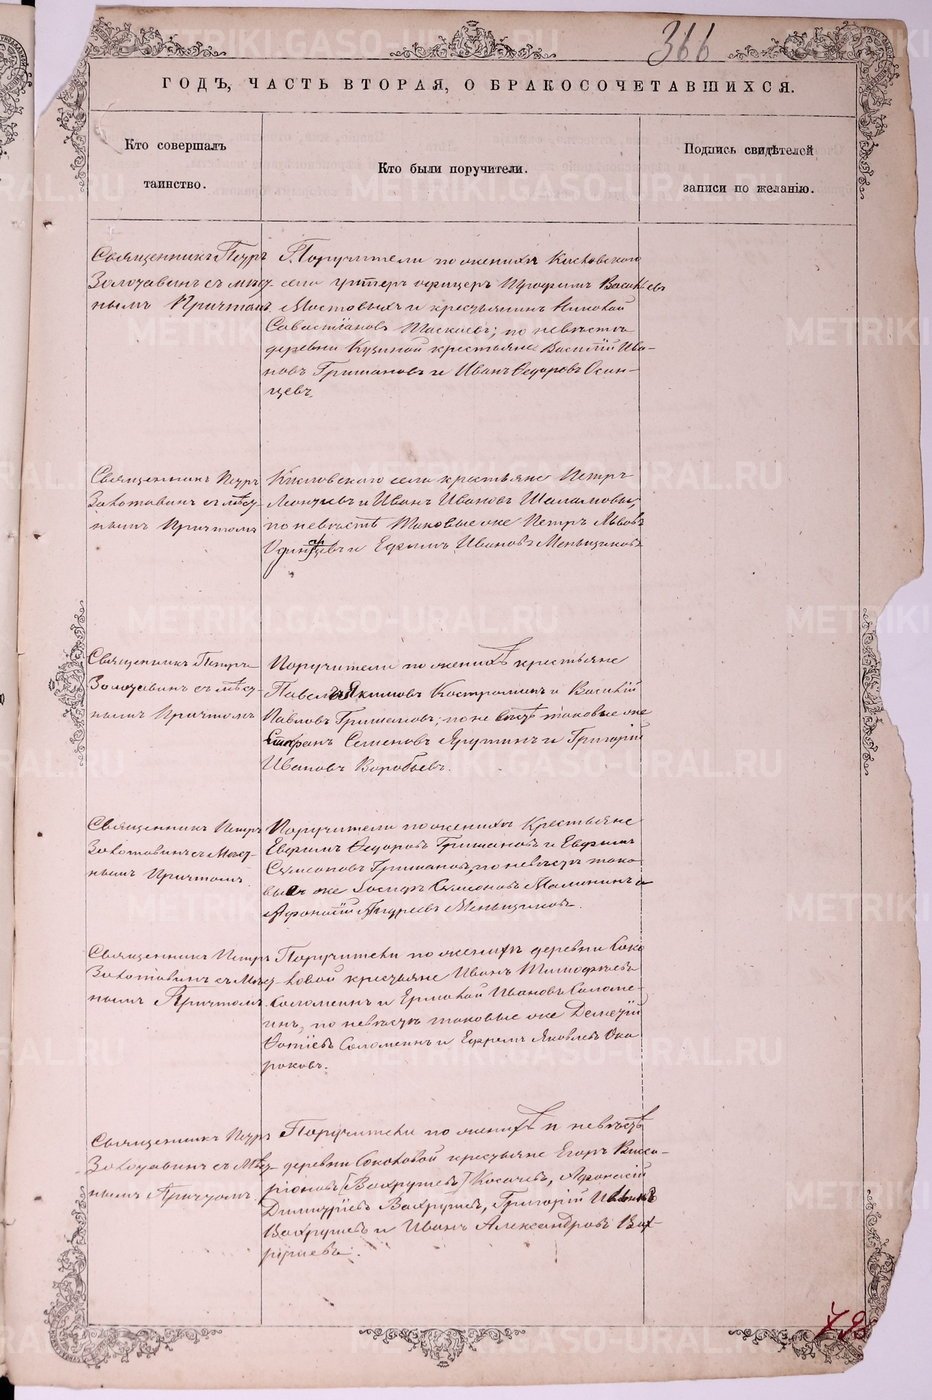 366
ГОДЪ, ЧАСТЬ ВТОРАЯ, О БРАКОСОЧЕТАВШИХСЯ.
Кто совершалъ
таинство.
Кто были поручители.
Подпись свидѣтелей
записи по желанію.
Священникъ Петръ
Золотавинъ съ мѣст-
нымъ Причтомъ
Поручители по женихѣ Кисловскаго
села унтеръ офицеръ Профимъ Васильевъ
Мостовыхъ и крестьянинъ Николай
Савастіановъ Таскаевъ; по невѣстѣ
деревни Кузиной крестьяне Василій Ива-
новъ Гришановъ и Иванъ Ѳедоровъ Осин-
цевъ.
Священникъ Петръ
Золотавинъ съ мѣст-
нымъ Причтомъ
Кисловскаго села крестьяне Петръ
Леонтьевъ и Иванъ Ивановъ Шаламовы,
по невѣстѣ таковые же Петръ Львовъ
и Ефимъ Ивановъ Меньщиковъ
Священникъ Петръ
Золотавинъ съ мѣст-
нымъ Причтомъ
Поручители по женихѣ крестьяне
Павелъ Якимовъ Костроминъ и Василій
Павловъ Гришановъ; по невѣстѣ таковые же
Семеновъ Ярутинъ и Григорій
Ивановъ Воробьевъ.
Священникъ Петръ
Золотавинъ съ Мѣст-
нымъ Причтомъ
Поручители по женихѣ Крестьяне
Евфимъ Ѳедоровъ Гришановъ и Евфимъ
Симеоновъ Гришановъ, по невѣстѣ тако-
вые же Іосифъ Симеоновъ Малининъ и
Афонасій Андреевъ Меньщиковъ.
Священникъ Петръ
Золотавинъ съ Мѣст-
нымъ Причтомъ.
Поручители по женихѣ деревни Соко-
ловой крестьяне Иванъ Тимофѣевъ
Соломеинъ и Ермолай Ивановъ Соломе-
инъ, по невѣстѣ таковые же Дементій
Фотіевъ Соломеинъ и Ефремъ Яковлевъ Ока-
роковъ.
Священникъ Петръ
Золотавинъ съ Мѣст-
нымъ Причтомъ.
Поручители по женихѣ и невѣстѣ
деревни Соколовой крестьяне Егоръ Висса-
ріоновъ (Вахрушевъ) Косачевъ, Афонасій
Димитріевъ Вахрушевъ, Григорій Ивановъ
Вахрушевъ и Иванъ Александровъ Вах-
рушевъ.